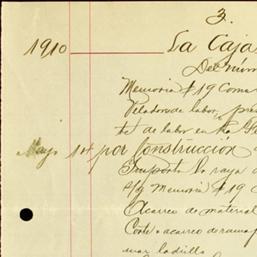 3.
1910 La Caja
Del núm
Memoria #19 Coma
Velador de labor, pre
de labor en ha
Mayo 1st por Construccion
Importó la raya d
s/g Memoria #19
Acarreo de material
Corte y acarreo de rama
mar ladrillo